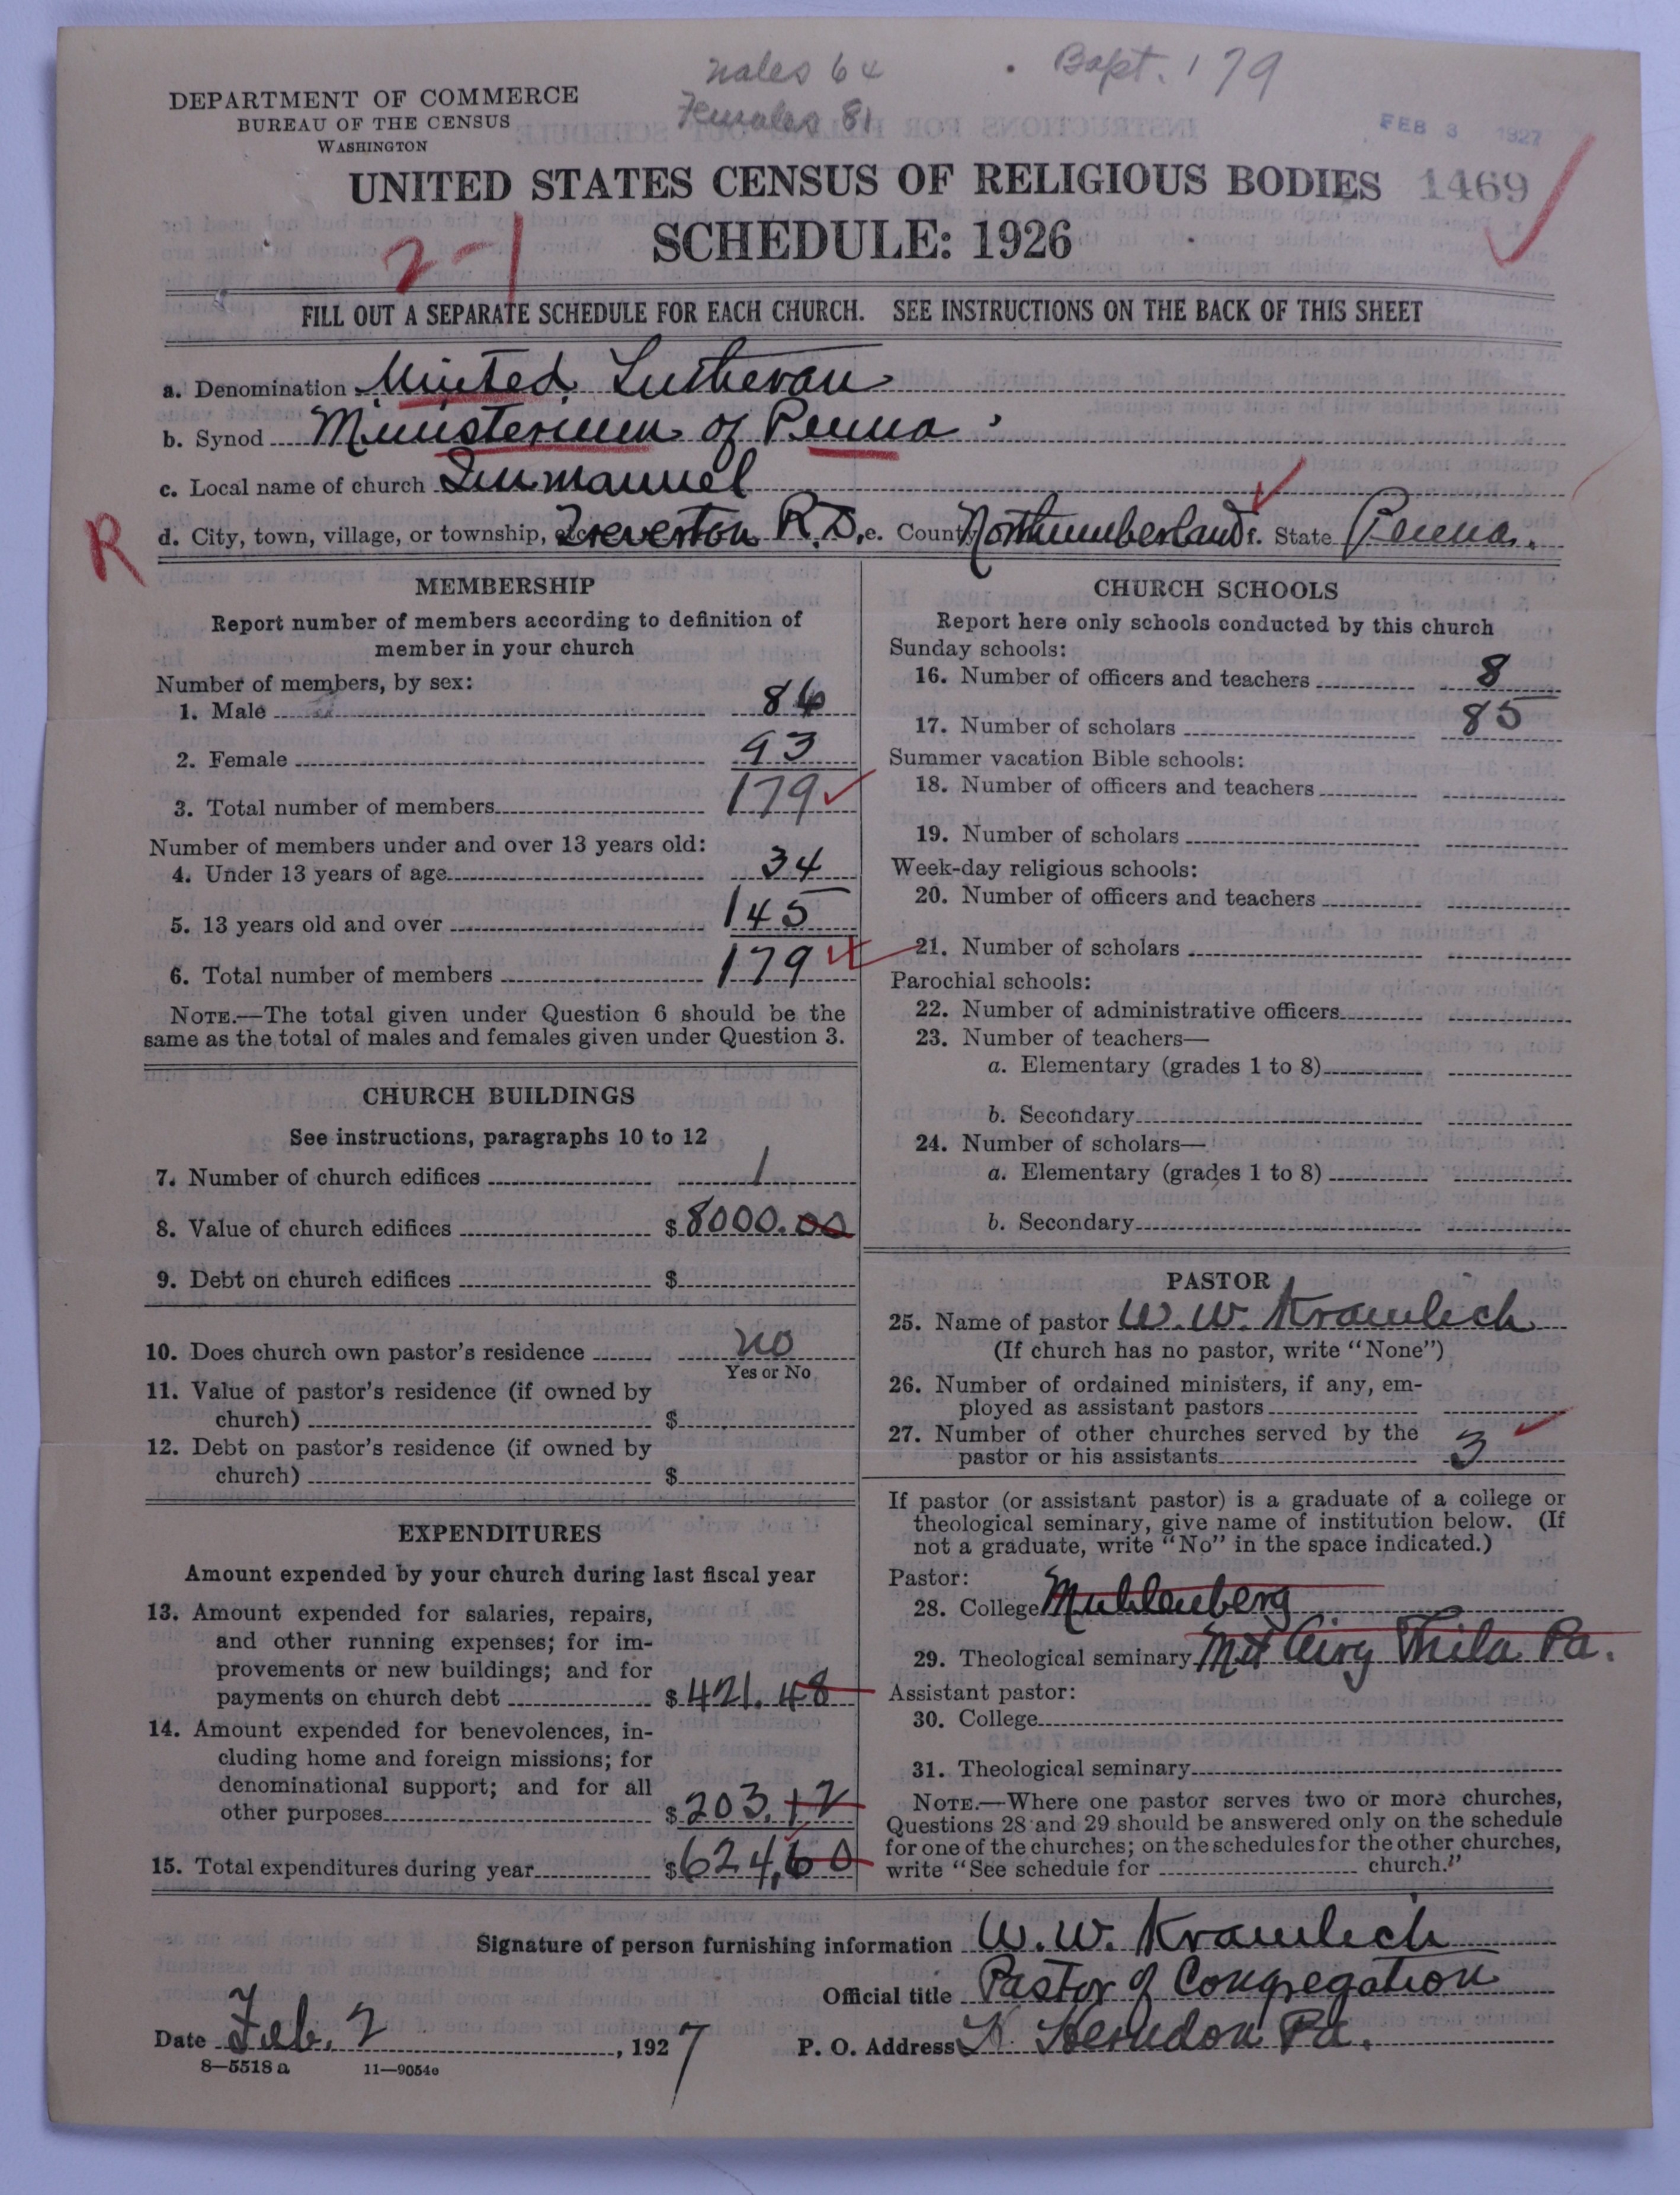 Males 64
Females 81
Bapt. 179
DEPARTMENT OF COMMERCE
BUREAU OF THE CENSUS
WASHINGTON
FEB 3 1927
UNITED STATES CENSUS OF RELIGIOUS BODIES 1469
SCHEDULE: 1926
2-1
FILL OUT A SEPARATE SCHEDULE FOR EACH CHURCH. SEE INSTRUCTIONS ON THE BACK OF THIS SHEET
a. Denomination United Lutheran
b. Synod Ministerium of Penna
c. Local name of church Immanuel
R
d. City, town, village, or township, etc. Treverton R.D. e. County Northumberland f. State Penna.
MEMBERSHIP
Report number of members according to definition of
member in your church
Number of members, by sex:
1. Male 86
2. Female 93
3. Total number of members 179
Number of members under and over 13 years old:
4. Under 13 years of age 34
5. 13 years old and over 145
6. Total number of members 179
NOTE.—The total given under Question 6 should be the
same as the total of males and females given under Question 3.
CHURCH BUILDINGS
See instructions, paragraphs 10 to 12
7. Number of church edifices 1
8. Value of church edifices $8000.00
9. Debt on church edifices $
10. Does church own pastor's residence no
Yes or No
11. Value of pastor's residence (if owned by
church) $
12. Debt on pastor's residence (if owned by
church) $
EXPENDITURES
Amount expended by your church during last fiscal year
13. Amount expended for salaries, repairs,
and other running expenses; for im-
provements or new buildings; and for
payments on church debt $421.48
14. Amount expended for benevolences, in-
cluding home and foreign missions; for
denominational support; and for all
other purposes $203.12
15. Total expenditures during year $624.60
CHURCH SCHOOLS
Report here only schools conducted by this church
Sunday schools:
16. Number of officers and teachers 8
17. Number of scholars 85
Summer vacation Bible schools:
18. Number of officers and teachers
19. Number of scholars
Week-day religious schools:
20. Number of officers and teachers
21. Number of scholars
Parochial schools:
22. Number of administrative officers
23. Number of teachers—
a. Elementary (grades 1 to 8)
b. Secondary
24. Number of scholars—
a. Elementary (grades 1 to 8)
b. Secondary
PASTOR
25. Name of pastor W. W. Kramlich
(If church has no pastor, write "None")
26. Number of ordained ministers, if any, em-
ployed as assistant pastors
27. Number of other churches served by the
pastor or his assistants 3
If pastor (or assistant pastor) is a graduate of a college or
theological seminary, give name of institution below. (If
not a graduate, write "No" in the space indicated.)
Pastor:
28. College Muhlenberg
29. Theological seminary Mt Airy Phila Pa.
Assistant pastor:
30. College
31. Theological seminary
NOTE.—Where one pastor serves two or more churches,
Questions 28 and 29 should be answered only on the schedule
for one of the churches; on the schedules for the other churches,
write "See schedule for church."
Signature of person furnishing information W. W. Kramlich
Official title Pastor of Congregation
Date Feb. 2, 1927 P. O. Address Herndon Pa.
8—5518 a 11—9054e